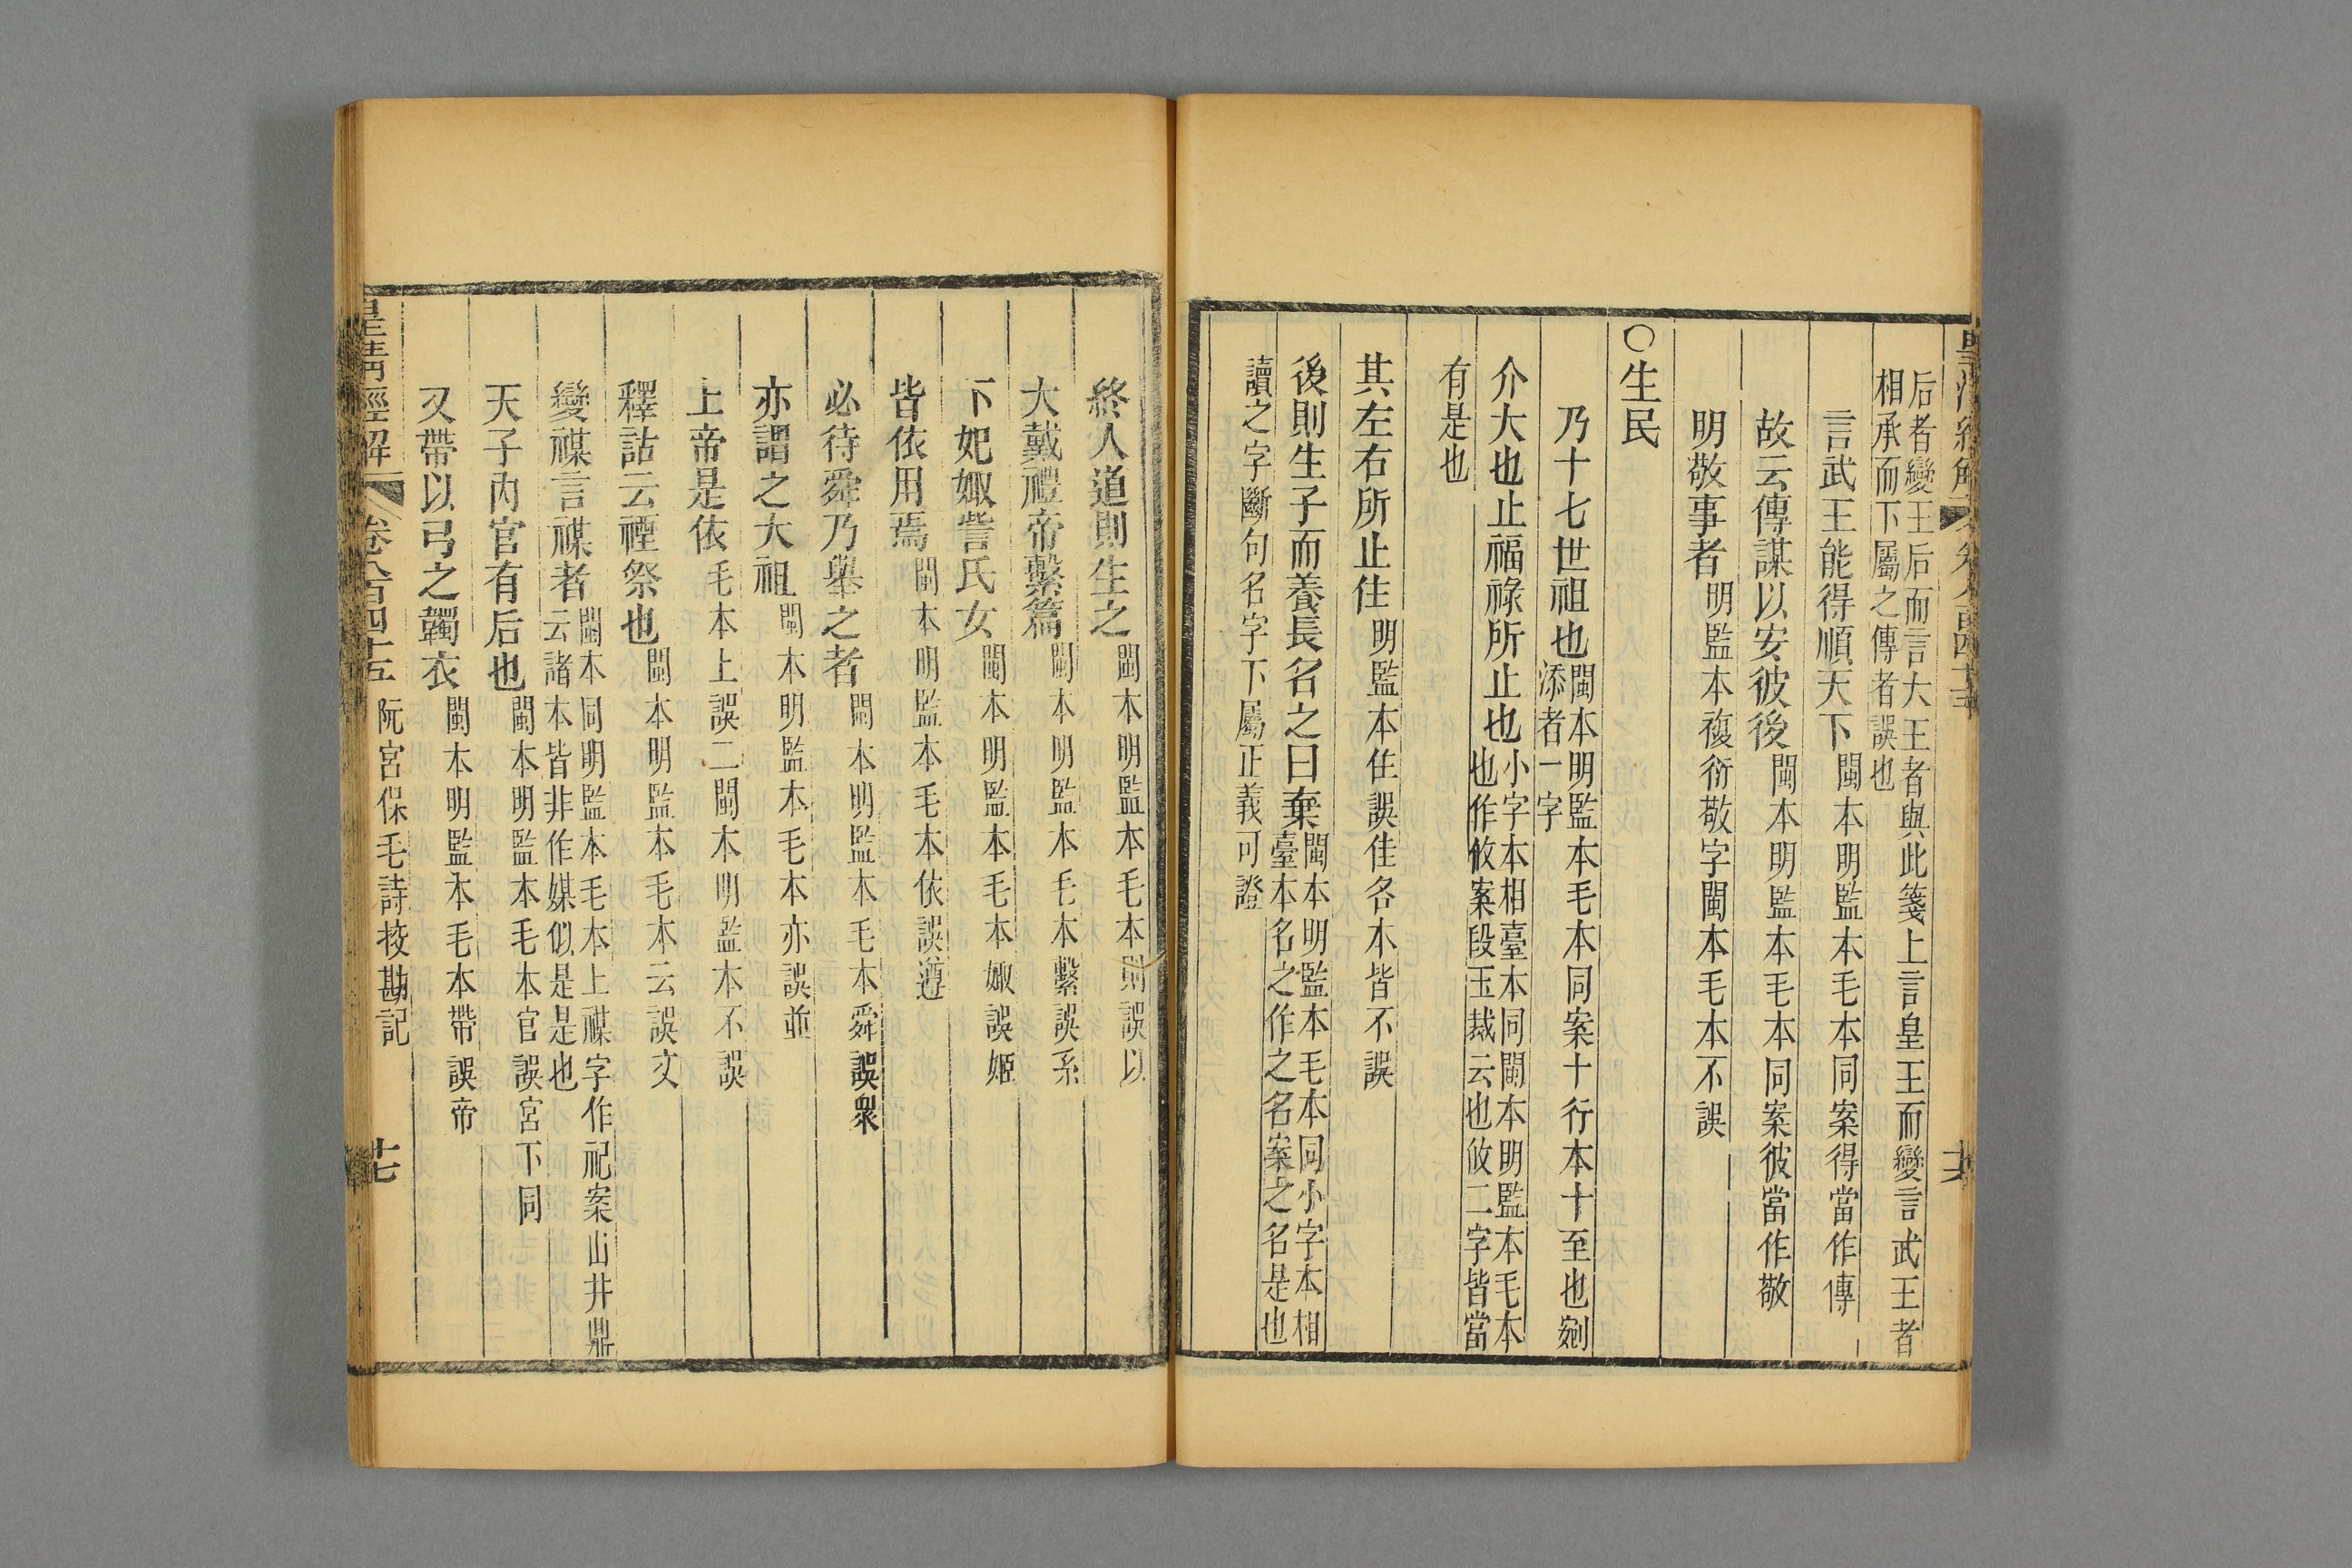 后者變王后而言大王者與此箋上言皇王而變言武王者
相承而下屬之傳者誤也
言武王能得順天下閩本明監本毛本同案得當作傳
故云傳謀以安彼後閩本明監本毛本同案彼當作敬
明敬事者明監本複衍敬字閩本毛本不誤
○生民
乃十七世祖也閩本明監本毛本同案十行本十至也剜
添者一字
介大也止福祿所止也小字本相臺本同閩本明監本毛本
也作攸案段玉裁云也攸二字皆當
有是也
其左右所止住明監本住誤佳各本皆不誤
後則生子而養長名之曰棄閩本明監本毛本同小字本相
臺本名之作之名案之名是也
讀之字斷句名字下屬正義可證
終人道則生之閩本明監本毛本則誤以
大戴禮帝繫篇閩本明監本毛本繫誤系
下妃娵訾氏女閩本明監本毛本娵誤姬
皆依用焉閩本明監本毛本依誤遵
必待舜乃舉之者閩本明監本毛本舜誤衆
亦謂之大祖閩本明監本毛本亦誤並
上帝是依毛本上誤二閩本明監本不誤
釋詁云禋祭也閩本明監本毛本云誤文
變禖言禖者閩本同明監本毛本上禖字作祀案山井鼎
云諸本皆非作媒似是是也
天子內官有后也閩本明監本毛本官誤宮下同
又帶以弓之韣衣閩本明監本毛本帶誤帝
皇清經解 卷八百四十五 阮宮保毛詩挍勘記 十七